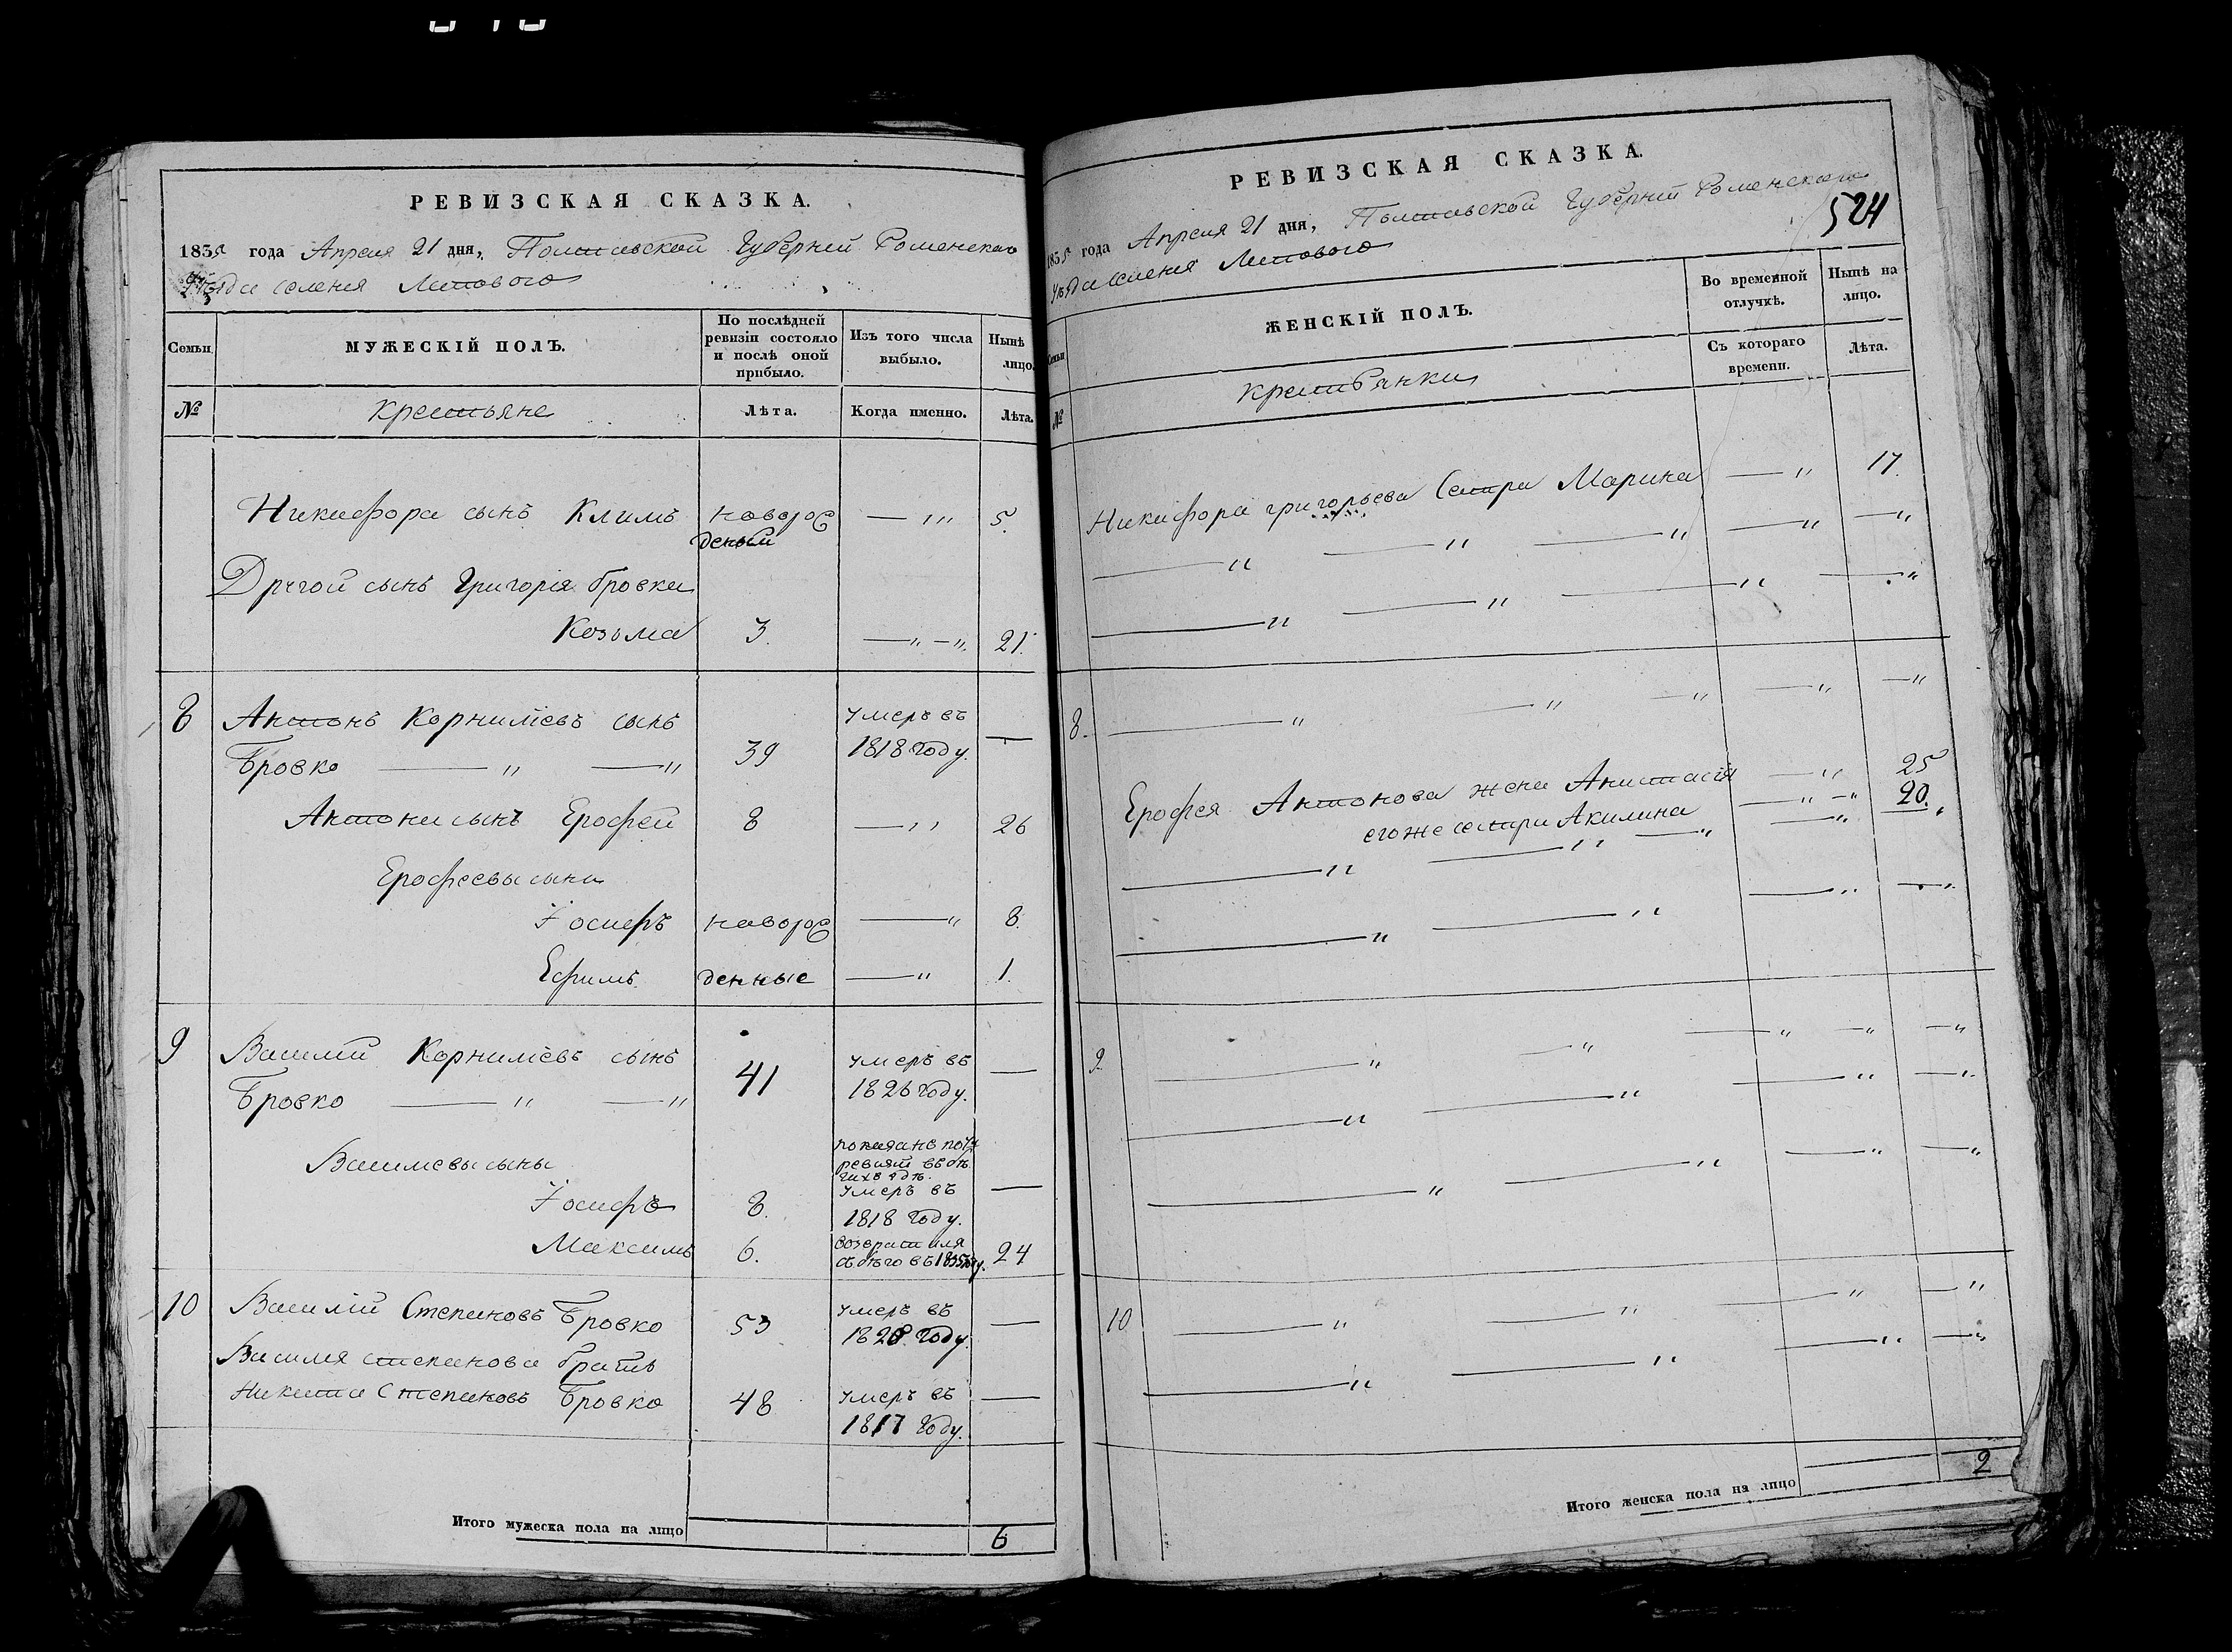 РЕВИЗСКАЯ СКАЗКА.
1835 года Апреля 21 дня, Полтавской Губерніи Роменскаго
уѣзда селенія Липового
Семьи
МУЖЕСКІЙ ПОЛЪ.
По послѣдней ревизіи состояло и послѣ оной прибыло.
Изъ того числа выбыло.
Нынѣ лицо.
№
крестьяне
Лѣта.
Когда именно.
Лѣта.
Никифора сынъ Климъ новорож — " 5.
денный
Другой сынъ Григорія бровки
Козьма 3. — " — " 21.
8 Антонъ Корниліевъ сынъ умеръ въ —
Бровко — " — " 39 1818 году.
Антона сынъ Ерофей 8 — " 26
Ерофеевы сыны
Іосифъ новорож — " 8.
Ефимъ денные — " 1.
9 Василій Корниліевъ сынъ 41 умеръ въ —
Бровко — " — " 1826 году.
показанъ по 7й
Васильевы сыны ревизіи въ бѣ
гахъ
Іосифъ 8. умеръ въ —
1818 году.
Максимъ 6. возвратился 24
съ бѣго въ 1835 году.
10 Василій Степановъ Бровко 53 умеръ въ —
1828 году.
Василия степанова братъ
Никита Степановъ Бровко 48 умеръ въ —
1817 году.
Итого мужеска пола на лицо 6
РЕВИЗСКАЯ СКАЗКА.
524
1835 года Апреля 21 дня, Полтавской Губерніи Роменскаго
уѣзда селенія Липового
Семьи
ЖЕНСКІЙ ПОЛЪ.
Во временной отлучкѣ.
Нынѣ на лицо.
Съ котораго времени.
Лѣта.
№
крестьянки
Никифора григорьева сестра Марина — " 17.
— " — " — " — " — "
— " — " — " — "
8. — " — " — " — " — "
Ерофея Антонова жена Анастасія — " 25
его же сестра Акилина — " — " 20.
— " — " — " — "
— " — " — " — "
9. — " — " — " — " — "
— " — " — " — "
— " — " — " — "
10 — " — " — " — "
— " — " — " — "
Итого женска пола на лицо 2